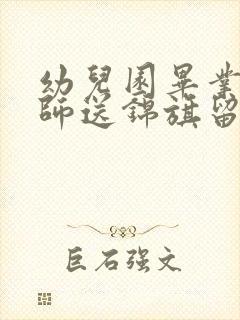 幼兒園畢業
師送錦旗留
巨石强文